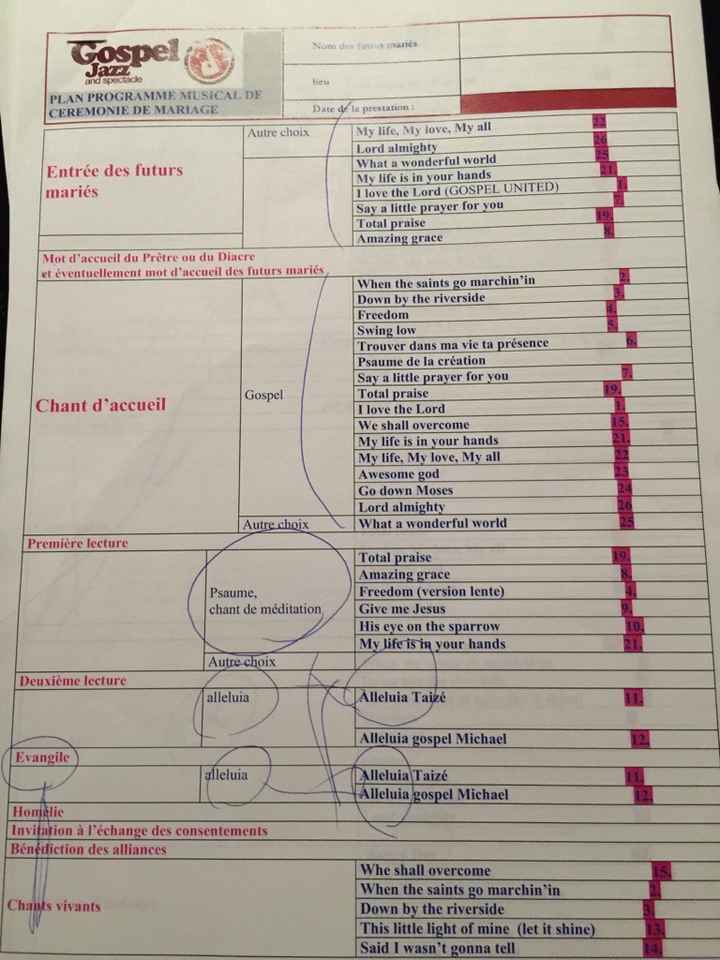 Gospel
Jazz
and spectacle
PLAN PROGRAMME MUSICAL DE
CEREMONIE DE MARIAGE
Nom des futurs mariés
lieu
Date de la prestation :
Entrée des futurs
mariés
Autre choix
My life, My love, My all 22
Lord almighty 26
What a wonderful world 25
My life is in your hands 21.
I love the Lord (GOSPEL UNITED) 1.
Say a little prayer for you 7.
Total praise 19.
Amazing grace 8.
Mot d'accueil du Prêtre ou du Diacre
et éventuellement mot d'accueil des futurs mariés
Chant d'accueil
Gospel
When the saints go marchin'in 2.
Down by the riverside 3.
Freedom 4.
Swing low 5.
Trouver dans ma vie ta présence 6.
Psaume de la création
Say a little prayer for you 7.
Total praise 19.
I love the Lord 1.
We shall overcome 15.
My life is in your hands 21.
My life, My love, My all 22
Awesome god 23
Go down Moses 24
Lord almighty 26
Autre choix What a wonderful world 25
Première lecture
Psaume,
chant de méditation
Total praise 19.
Amazing grace 8.
Freedom (version lente) 4.
Give me Jesus 9.
His eye on the sparrow 10.
My life is in your hands 21.
Autre choix
Deuxième lecture
alleluia Alleluia Taizé 11.
Alleluia gospel Michael 12.
Evangile
alleluia Alleluia Taizé 11.
Alleluia gospel Michael 12.
Homélie
Invitation à l'échange des consentements
Bénédiction des alliances
Chants vivants
Whe shall overcome 15.
When the saints go marchin'in 2.
Down by the riverside 3.
This little light of mine (let it shine) 13.
Said I wasn't gonna tell 14.